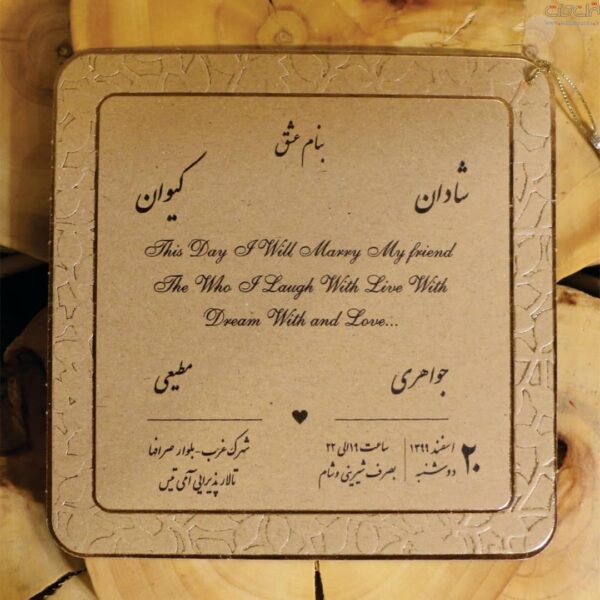 بنام عشق
شادان
کیوان
This Day I Will Marry My friend
The Who I Laugh With Live With
Dream With and Love...
جواهری
مطیعی
۲۰ اسفند ۱۳۹۹
دوشنبه
ساعت ۱۹ الی ۲۲
بصرف شیرینی و شام
شهرک غرب - بلوار صرافها
تالار پذیرایی آمی تیس